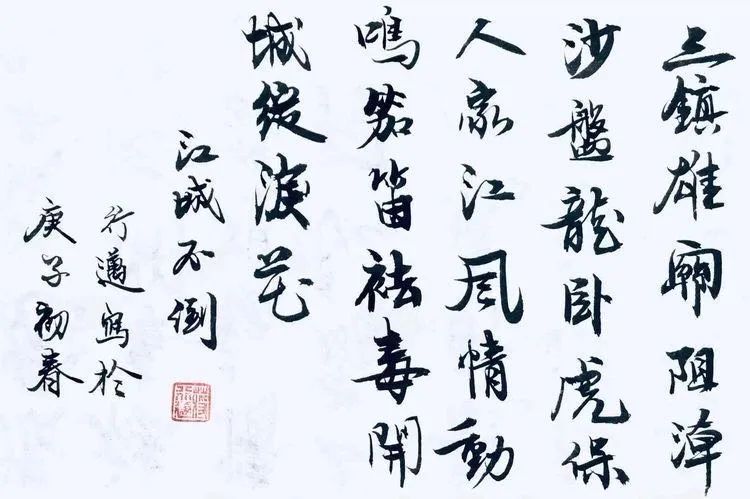 三鎮雄廟阻漳
沙盤龍卧虎保
人家江風情動
鳴笳笛祛毒開
城綻淚花
江城不倒
行邁寫於
庚子初春